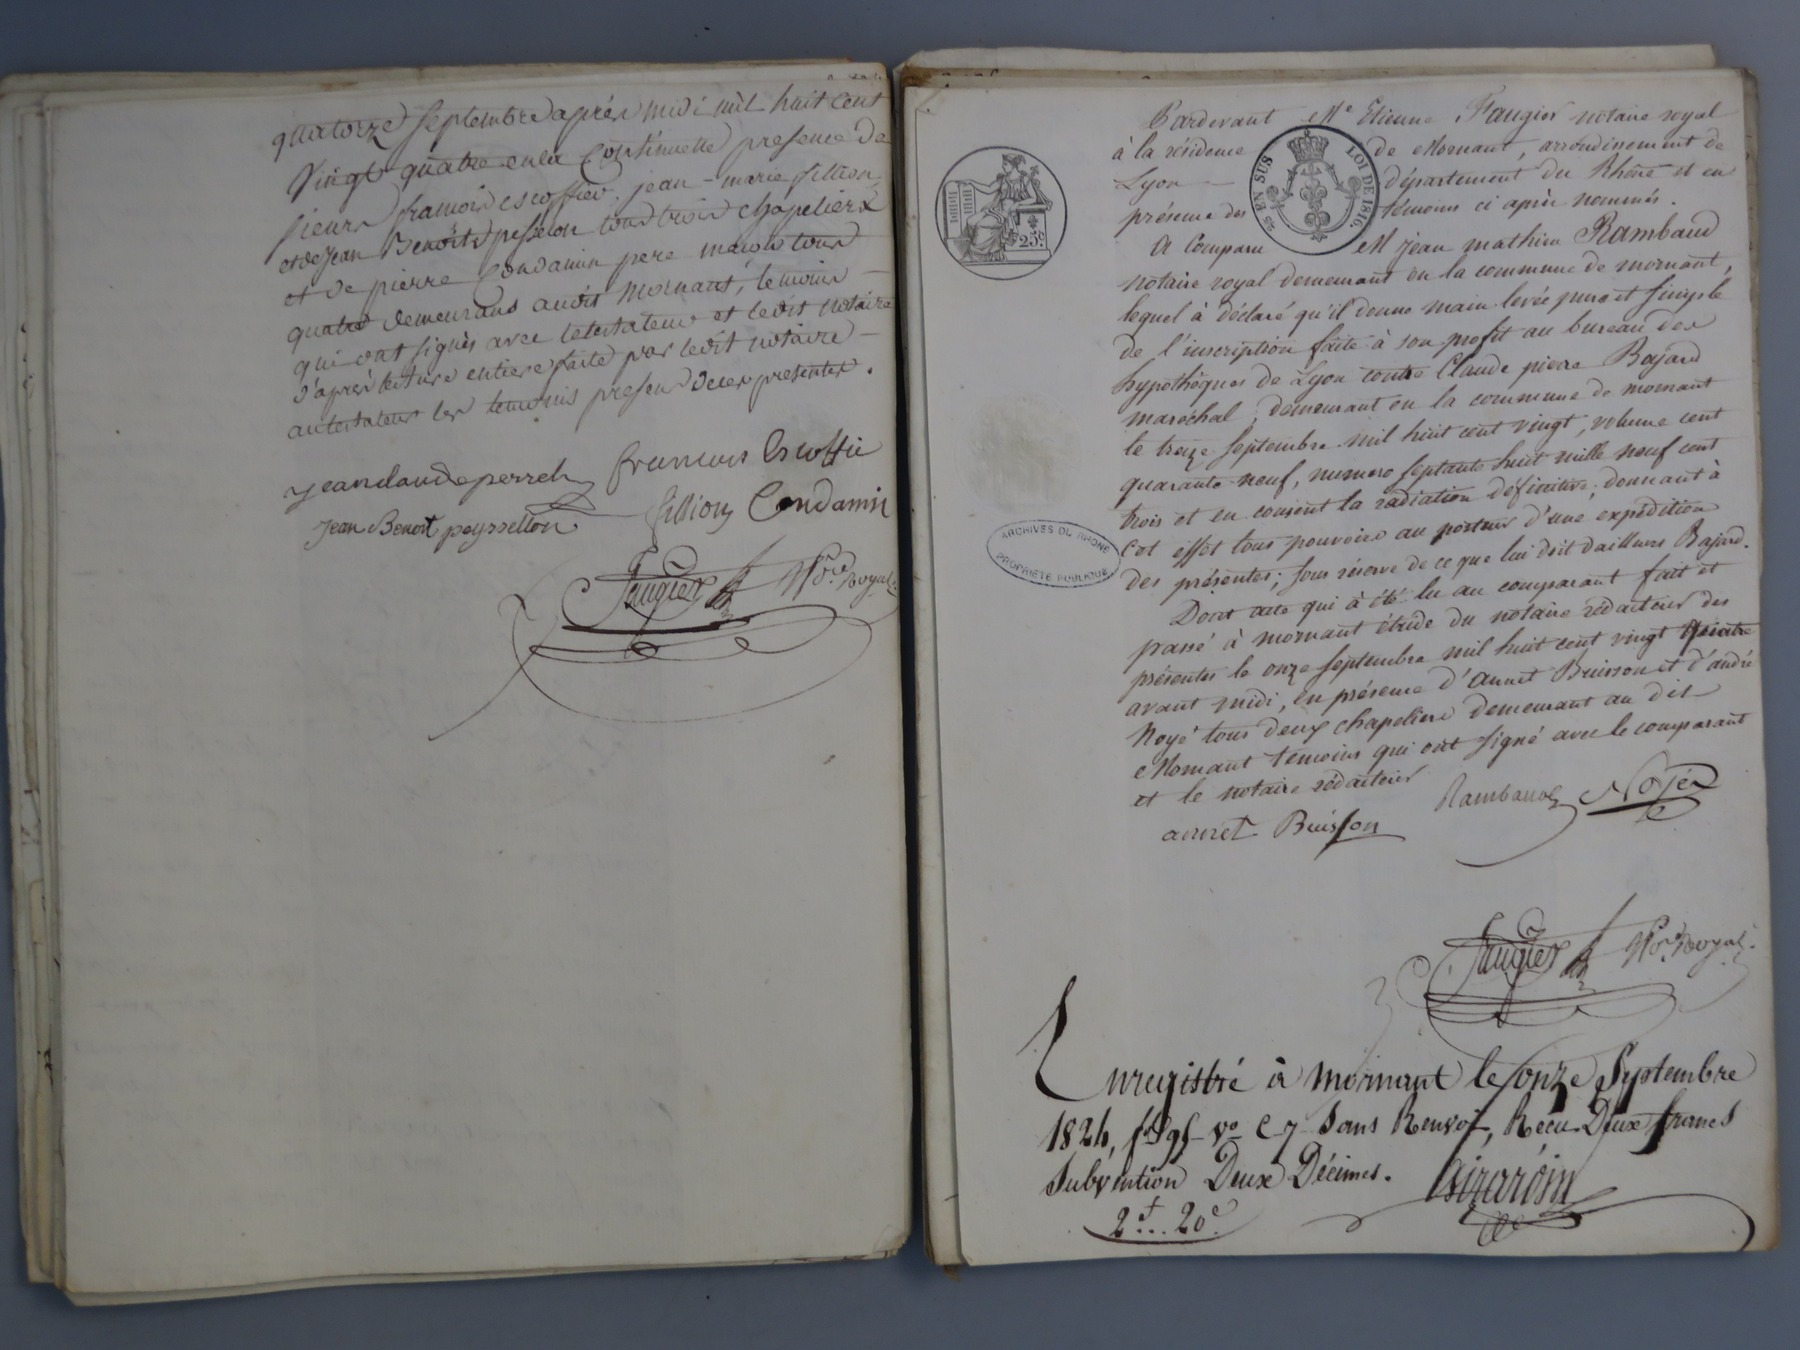 quatorze septembre après midi mil huit cent
vingt quatre en la continuelle presence de
sieurs francois escoffier jean-marie fillion
et de jean Benoit pesselon tous trois chapeliers
et de pierre Condamin pere macon tous
quatre demeurans audit Mornant, temoins
qui ont signés avec letestateur et ledit notaire
d'après lecture entiere faite par ledit notaire
autestateur les temoins presens deces presentes.
jean claude perret francois Escoffie
fillion Condamin
jean Benoit peyssellon
Faugier Nre Royal
Pardevant Me Etienne Faugier notaire royal
à la résidence de Mornant, arrondissement de
Lyon département du Rhône et en
présence des témoins ci après nommés.
A Comparu M jean mathieu Rambaud
notaire royal demeurant en la commune de mornant,
lequel à déclaré qu'il donne main levée pure et simple
de l'inscription faite à son profit au bureau des
hypothèques de Lyon contre Claude pierre Bajard
maréchal, demeurant en la commune de mornant
le treize septembre mil huit cent vingt, volume cent
quarante neuf, numero septante huit mille neuf cent
trois et en consent la radiation définitive, donnant à
cet effet tous pouvoirs au porteur d'une expédition
des présentes; sous réserve de ce que lui doit dailleurs Bajard.
Dont acte qui à été lu au comparant fait et
passé à mornant étude du notaire rédacteur des
présentes le onze septembre mil huit cent vingt quatre
avant midi, en présence d'annet Buisson et d'andré
Noyé tous deux chapeliers demeurant au dit
Mornant témoins qui ont signé avec le comparant
et le notaire rédacteur
Rambaud Noyer
annet Buisson
Faugier Nre Royal
Enregistré à Mornant le onze Septembre
1824, fo 95 vo C 7 Sans Renvoi, Recu Deux francs
Subvention Deux Décimes. Girardin
2f... 20c
25c
25 EN SUS LOI DE 1816.
ARCHIVES DU RHONE
PROPRIÉTÉ PUBLIQUE